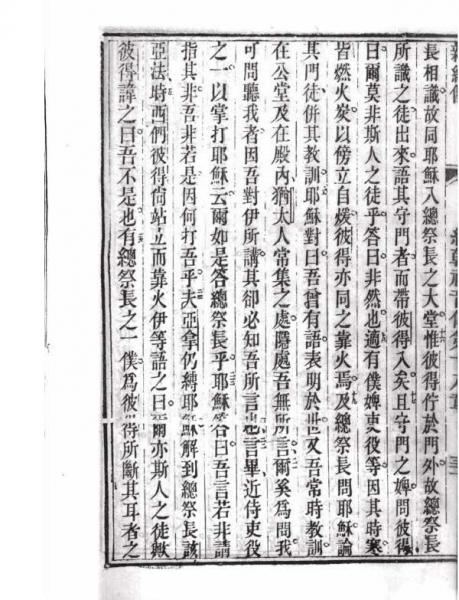 長相識故同耶穌入總祭長之大堂惟彼得佇於門外故總祭長
所識之徒出來語其守門者而帶彼得入矣且守門之婢問彼得
曰爾莫非斯人之徒乎答曰非然也適有僕婢吏役等因其時寒
皆燃火炭以傍立自煖彼得亦同之靠火焉及總祭長問耶穌論
其門徒併其教訓耶穌對曰吾曾有語表明於世又吾常時教訓
在公堂及在殿內猶太人常集之處隱處吾無所言爾奚為問我
可問聽我者因吾對伊所講其卻必知吾所言也言畢近侍吏役
之一以掌打耶穌云爾如是答總祭長乎耶穌答曰吾言若非請
指其非吾非若是因何打吾乎夫亞拿仍縛耶穌解到總祭長該
亞法時西們彼得尚站立而靠火伊等語之曰爾亦斯人之徒歟
彼得諱之曰吾不是也有總祭長之一僕為彼得所斷其耳者之